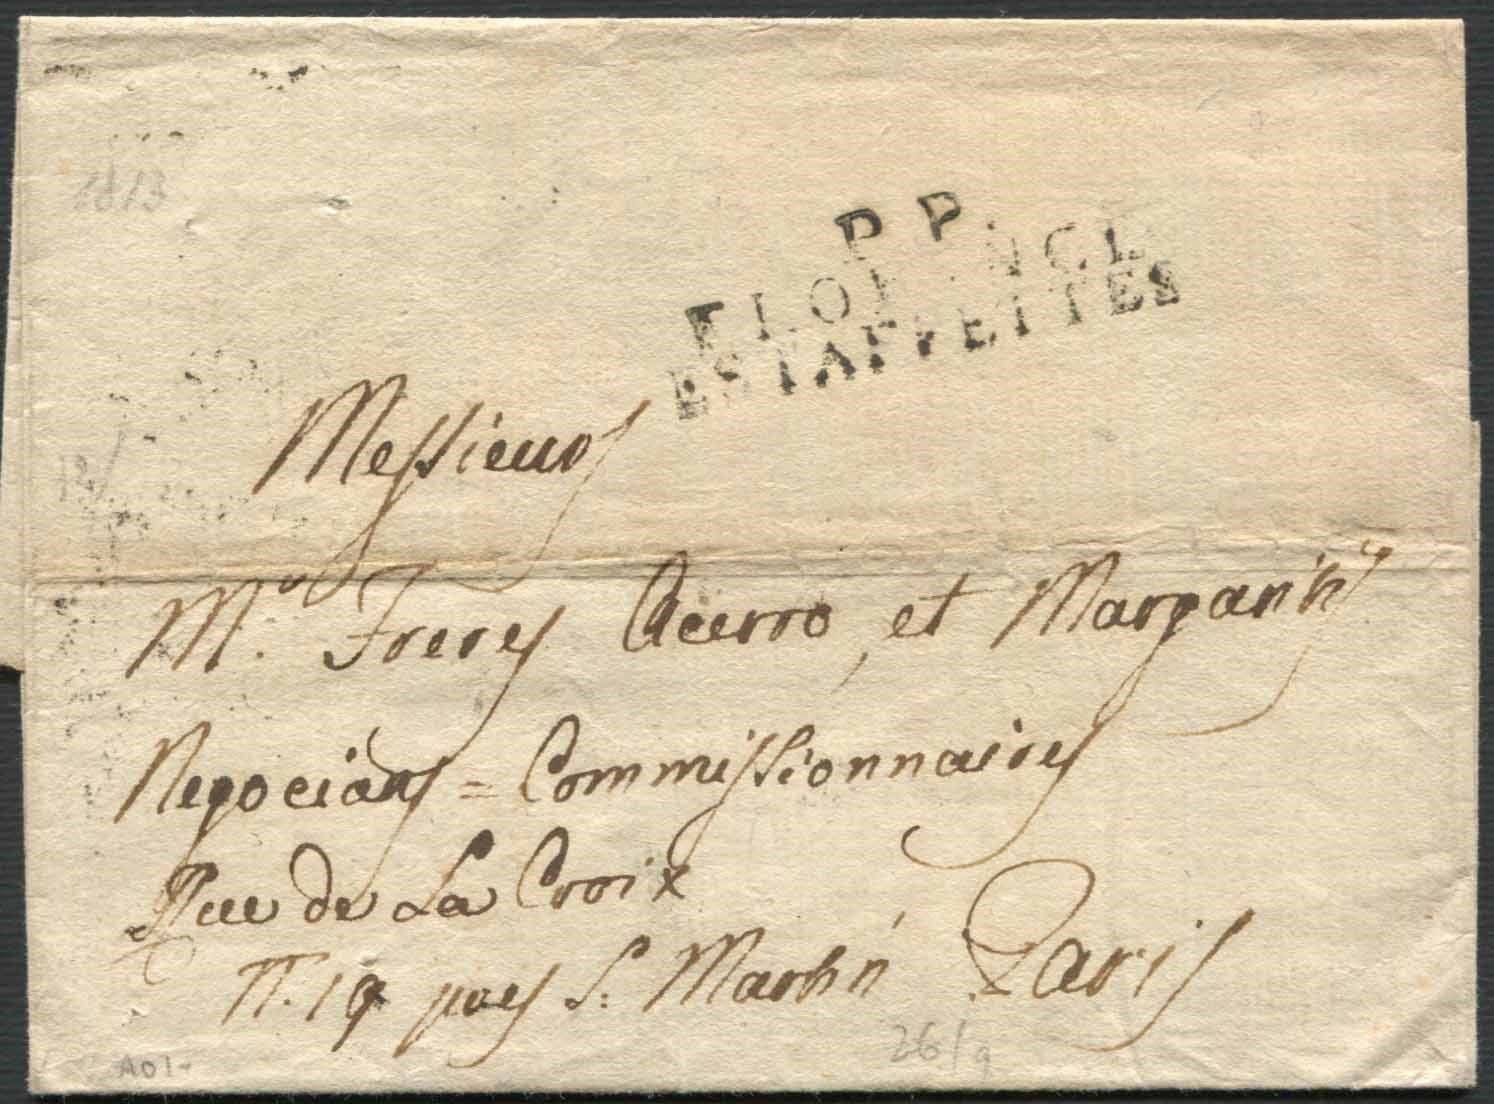 1813
P P
FLORENCE
ESTAFFETTES
Messieurs
Mrs. Freres Acerro, et Margarity
Negocians = Commissionnaires
Rue de La Croix
N. 19 pres St. Martin Paris
26/9
AOI-